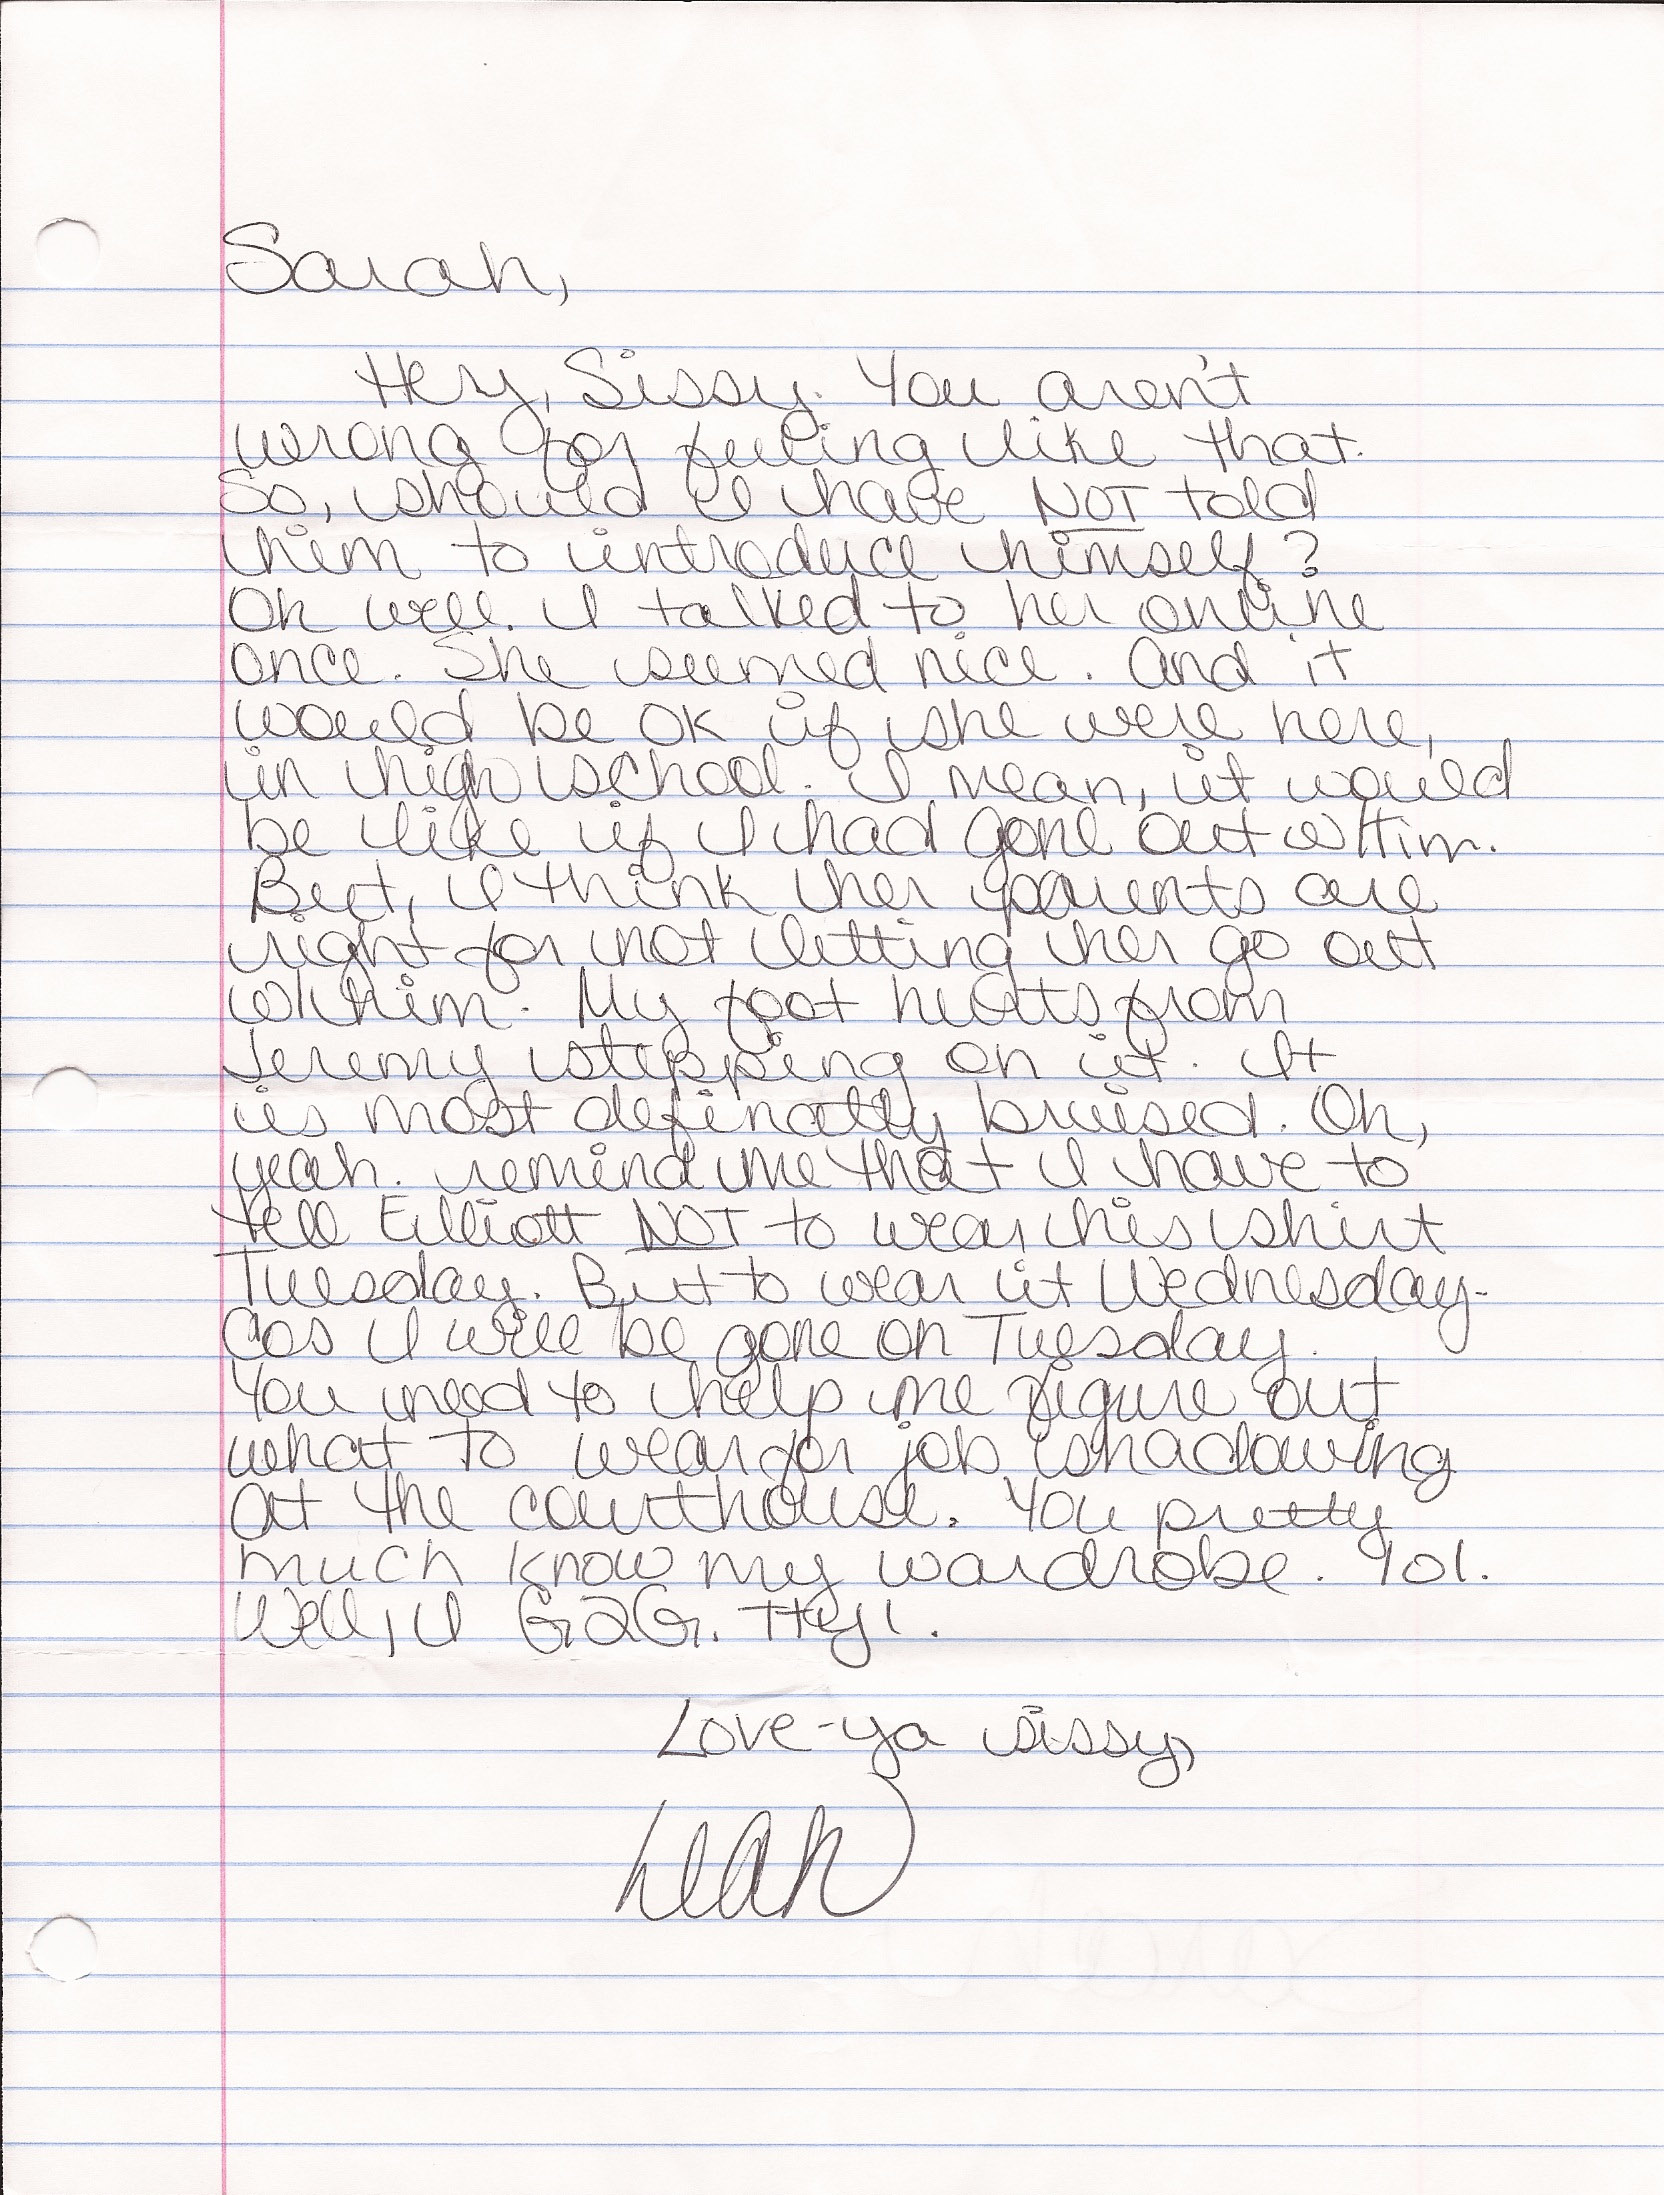 Sarah,
Hey, Sissy. You aren't
wrong for feeling like that.
So, should I have NOT told
him to introduce himself?
Oh well. I talked to her online
once. She seemed nice. And it
would be OK if she were here,
in high school. I mean, it would
be like if I had gone out w/Tim.
But, I think her parents are
right for not letting her go out
w/him. My foot hurts from
Jeremy stepping on it. It
is most definatly bruised. Oh,
yeah. remind me that I have to
tell Elliott NOT to wear his shirt
Tuesday. But to wear it Wednesday-
Cos I will be gone on Tuesday.
You need to help me figure out
what to wear for job shadowing
at the courthouse. You pretty
much know my wardrobe. lol.
Well, I G2G. ttyl.
Love-ya sissy,
Leah